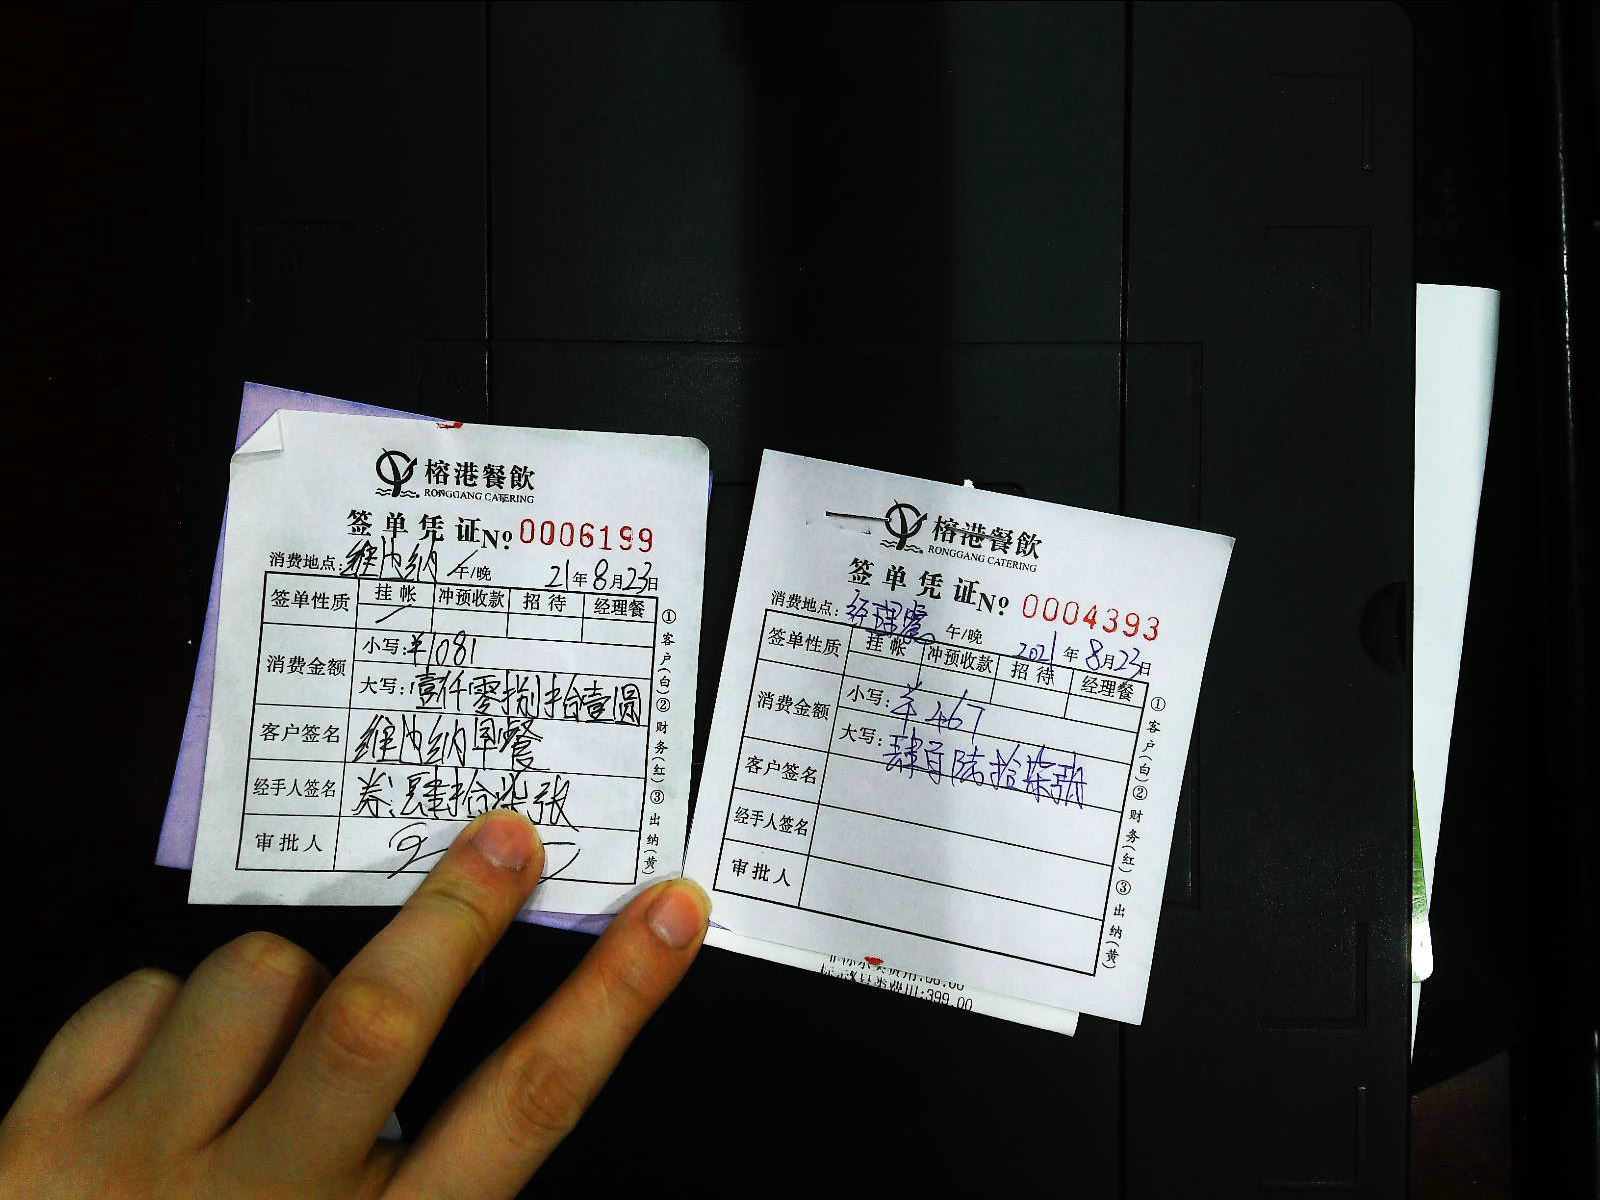 榕港餐飲
RONGGANG CATERING
签单凭证№0006199
消费地点：维也纳 午/晚 21年8月23日
签单性质 挂帐 冲预收款 招待 经理餐
消费金额 小写：¥1081
大写：壹仟零捌拾壹圆
客户签名 维也纳早餐
经手人签名 券：肆拾柒张
审批人
①客户(白)②财务(红)③出纳(黄)
榕港餐飲
RONGGANG CATERING
签单凭证№0004393
消费地点：经理餐 午/晚 2021年8月23日
签单性质 挂帐 冲预收款 招待 经理餐
消费金额 小写：¥467
大写：肆百陆拾柒
客户签名
经手人签名
审批人
①客户(白)②财务(红)③出纳(黄)
:399.00